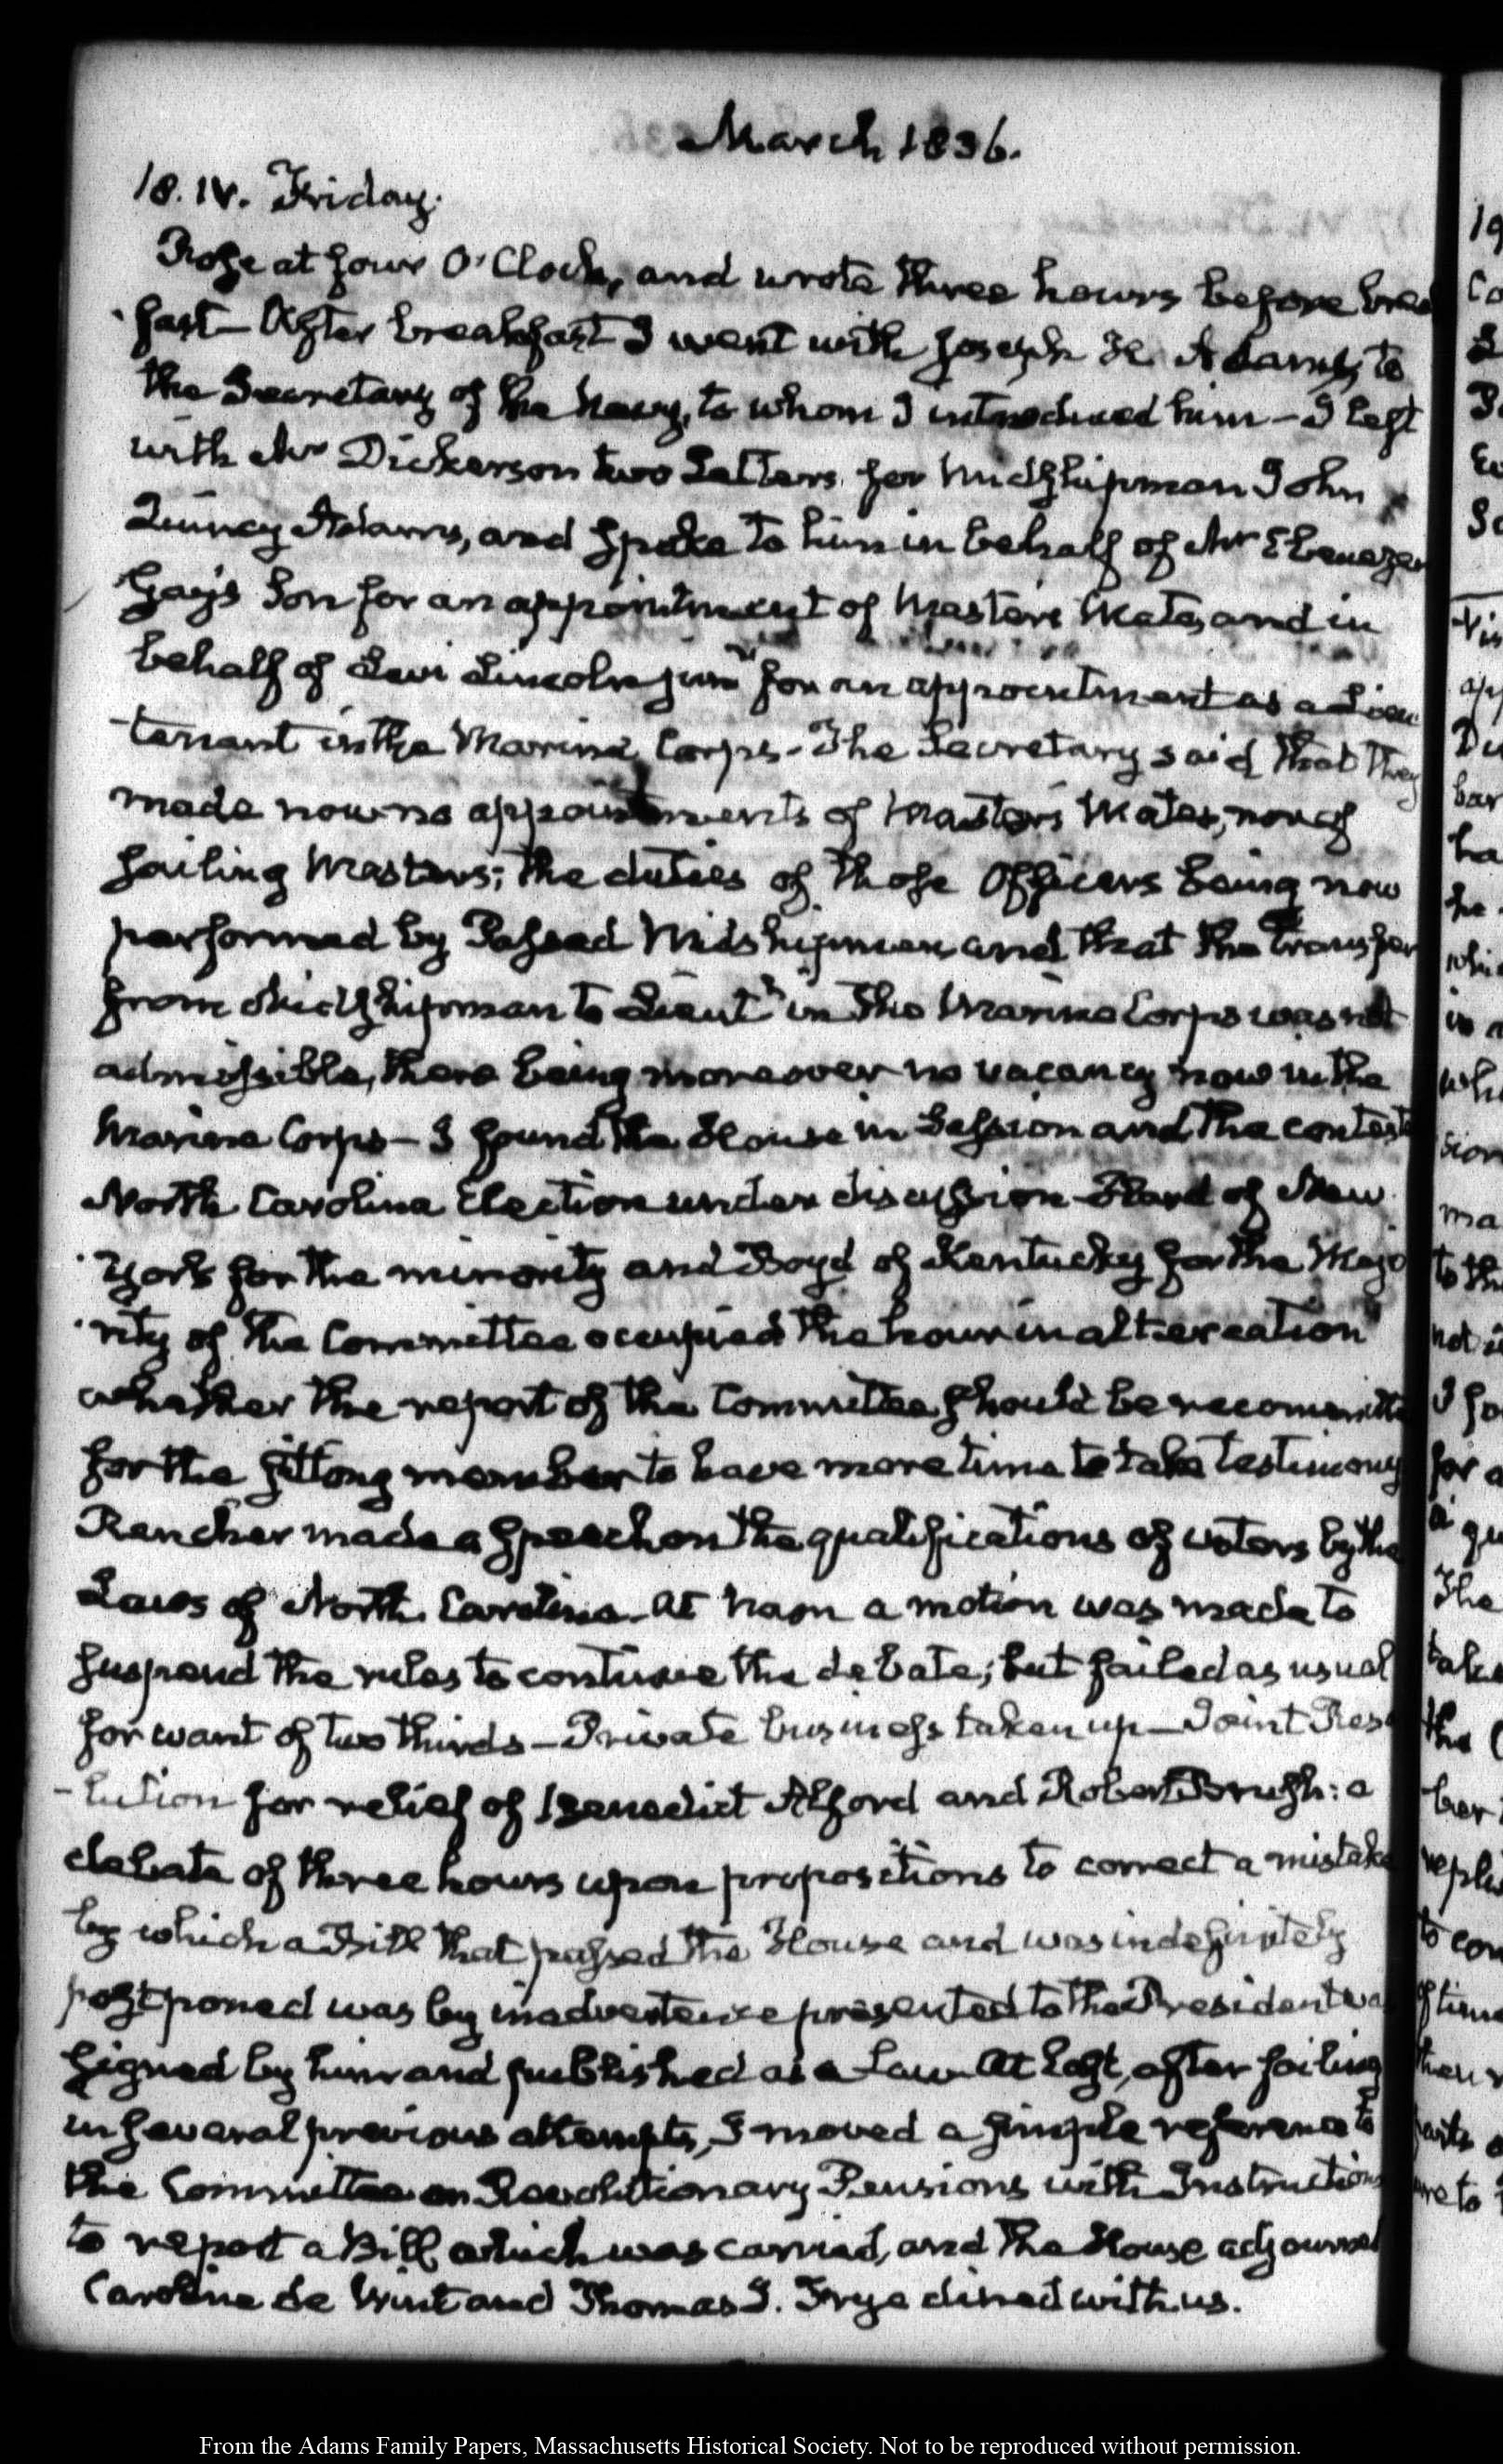 March 1836.
18. IV. Friday.
Rose at four O'Clock, and wrote three hours before brea
fast — After breakfast I went with Joseph H. Adams, to
the Secretary of the Navy, to whom I introduced him — I left
with Mr Dickerson two Letters for Midshipman John
Quincy Adams, and spoke to him in behalf of Mr Ebenezer
Gay's Son for an appointment of Master's Mate, and in
behalf of Levi Lincoln junr for an appointment as a Lieu
-tenant in the Marine Corps. The Secretary said that they
made now no appointments of Master's Mates, nor of
sailing Masters; the duties of those Officers being now
performed by Passed Midshipmen, and that the transfer
from Midshipman to Lieutt in the Marine Corps was not
admissible, there being moreover no vacancy now in the
Marine Corps — I found the House in Session and the contest
North Carolina Election under discussion. Hard of New
York for the minority and Boyd of Kentucky for the Majo
rity of the Committee occupied the hour in altercation
whether the report of the Committee should be recommitt
for the sitting member to have more time to take testimony
Rencher made a speech on the qualifications of voters by the
Laws of North Carolina. At Noon a motion was made to
suspend the rules to continue the debate; but failed as usual
for want of two thirds — Private business taken up — Joint Reso
-lution for relief of Benedict Alford and Robert Brush: a
debate of three hours upon propositions to correct a mistake
by which a Bill that passed the House and was indefinitely
postponed was by inadvertence presented to the President was
signed by him and published as a Law. At last, after failing
in several previous attempts, I moved a simple reference to
the Committee on Revolutionary Pensions with Instructions
to report a Bill which was carried, and the House adjourned
Caroline de Wint and Thomas J. Frye dined with us.
From the Adams Family Papers, Massachusetts Historical Society. Not to be reproduced without permission.